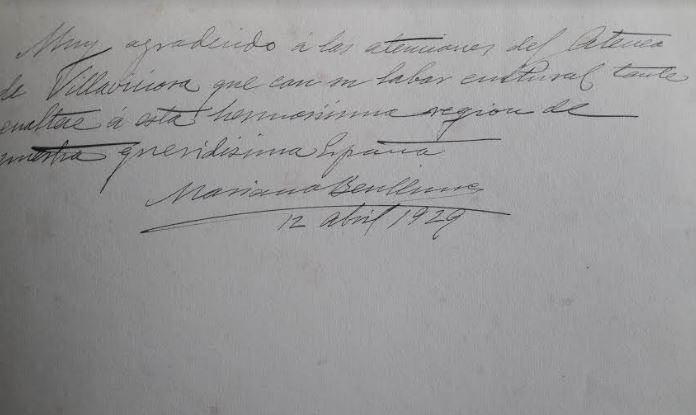 Muy agradecido á las atenciones del Ateneo
de Villaviciosa que con su labor cultural tanto
enaltece á esta hermosisima region de
nuestra queridisima España
Mariano Benlliure
12 abril 1929